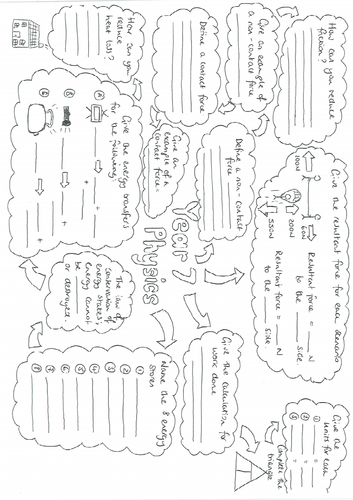 How can you reduce
friction?
Give an example of
a non-contact force
Define a contact
force
How can you
reduce
heat loss?
Give the resultant force for each scenario
100N
60N
Resultant force = ___ N
to the ___ side.
200N
550N
Resultant force = ___ N
to the ___ side
Define a non contact
force
Give an
example of a
contact force:
Year 7
Physics
Give the energy transfers
for the following:
A
B
C
+
+
+
The law of
conservation of
energy states,
energy cannot
be ___
or destroyed.
Give the calculation for
work done
Give the
units for each
1 =
2 =
3 =
Complete the
triangle
Name the 8 energy
stores
1
2
3
4
5
6
7
8